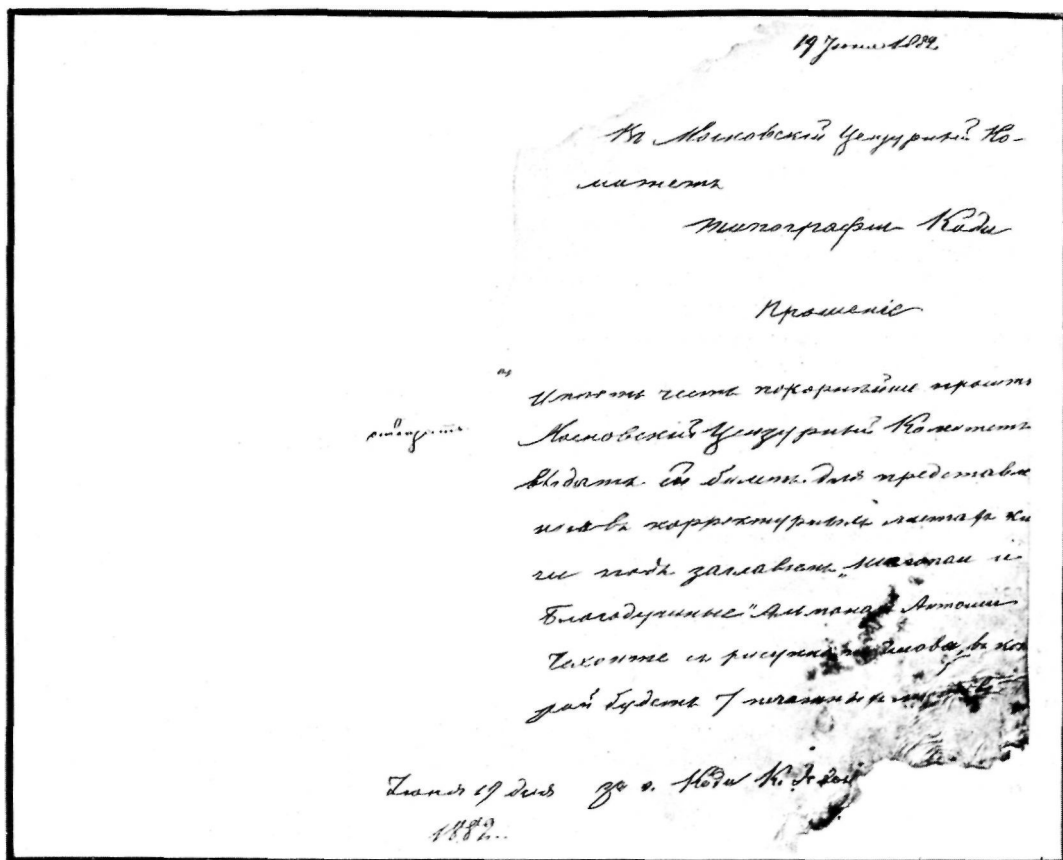 19 Июня 1882
Въ Московскій Цензурный Ко-
митетъ
типографіи Коди
Прошеніе
Имѣетъ честь покорнѣйше просить
Московскій Цензурный Комитетъ
выдать ей билетъ для представле
нія въ корректурныхъ листахъ кни
ги подъ заглавіемъ „Шалопаи и
Благодушные" Альманахъ Антоши
Чехонте съ рисунками Чехова, въ кото
рой будетъ 7 печатныхъ листовъ
Іюня 19 дня за г. Коди К.
1882.